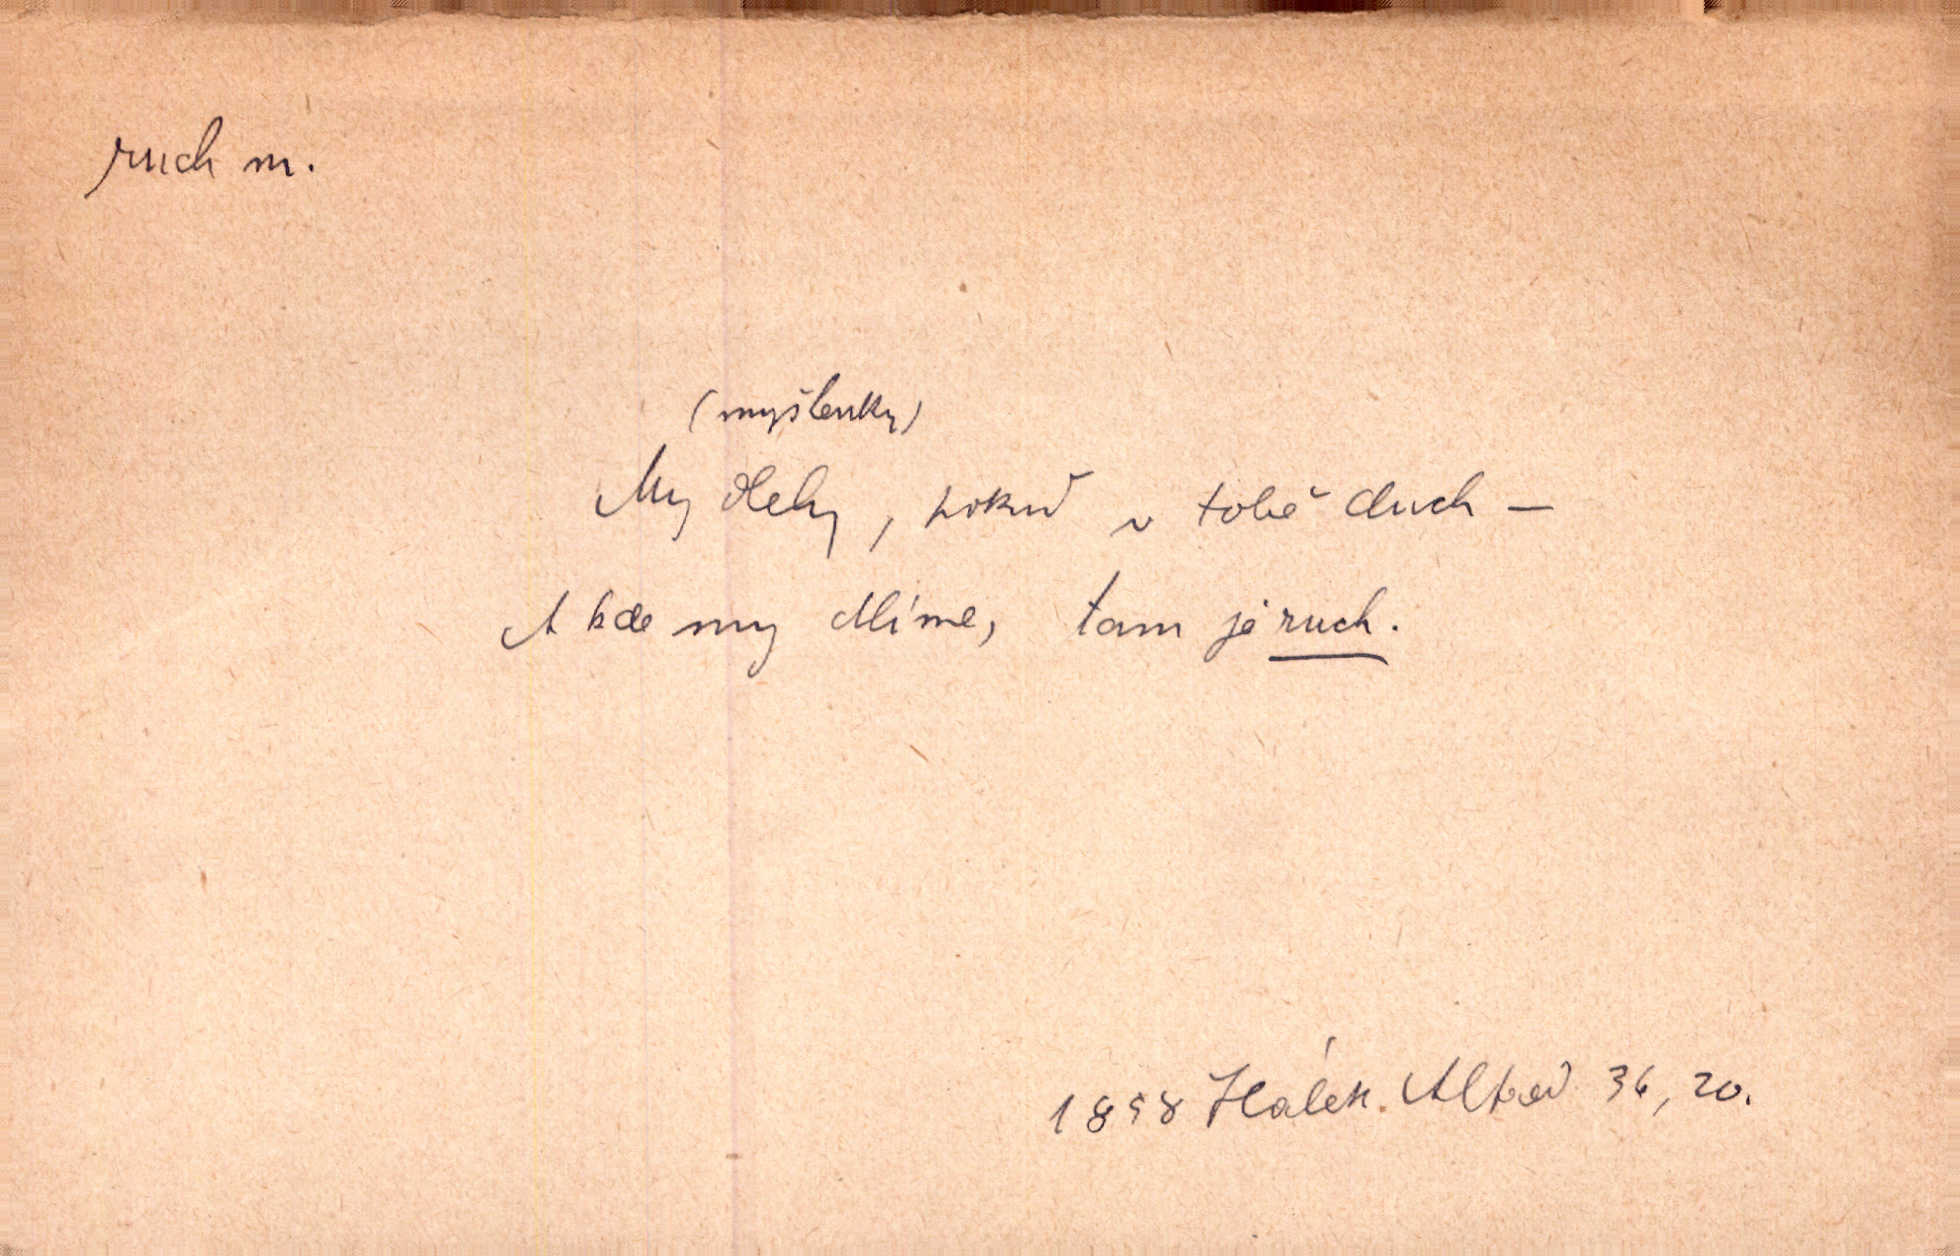 ruch m.
(myšlenky)
My dlely, pokud v tobě duch —
A kde my dlíme, tam je ruch.
1858 Hálek. Alfred 36, 20.